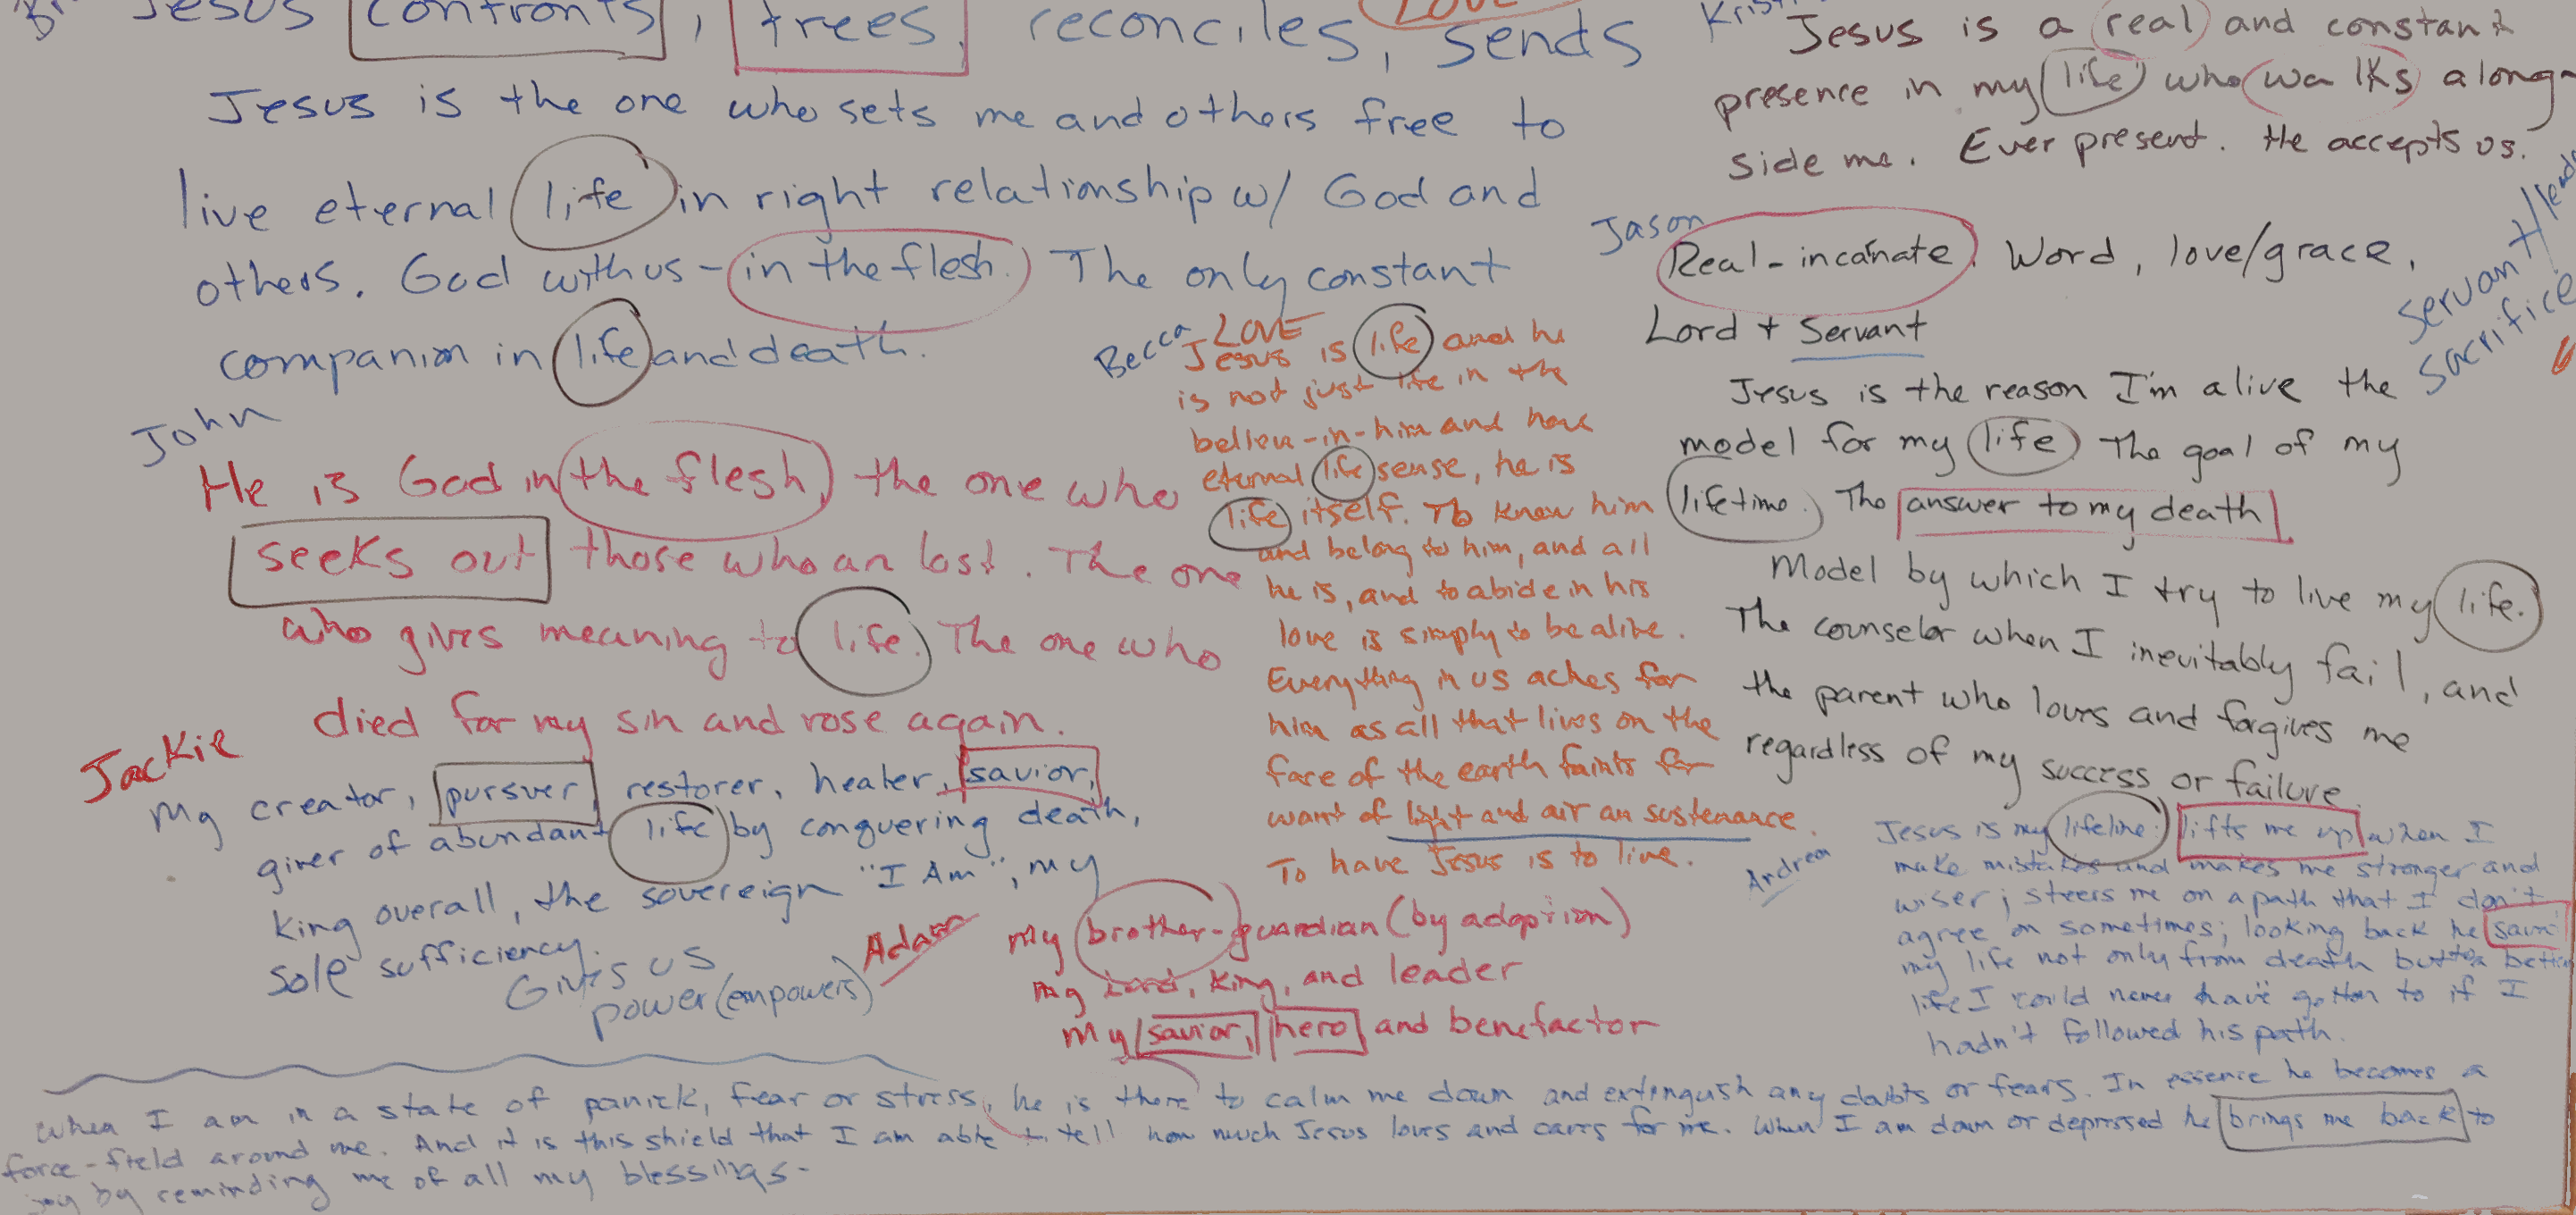 Jesus confronts, frees, reconciles, sends
Jesus is the one who sets me and others free to
live eternal life in right relationship w/ God and
others. God with us - in the flesh. The only constant
companion in life and death.
John
He is God in the flesh, the one who
seeks out those who are lost. The one
who gives meaning to life. The one who
died for my sin and rose again.
Jackie
My creator, pursuer, restorer, healer, savior,
giver of abundant life by conquering death,
King over all, the sovereign "I Am", my
sole sufficiency.
Gives us
power (empowers)
Becca
LOVE
Jesus is life and he
is not just life in the
believe-in-him and have
eternal life sense, he is
life itself. To know him
and belong to him, and all
he is, and to abide in his
love is simply to be alive.
Everything in us aches for
him as all that lives on the
face of the earth faints for
want of light and air an sustenance.
To have Jesus is to live.
Adam
My brother-guardian (by adoption)
my Lord, King, and leader
My savior, hero and benefactor
LOVE
Jesus is a real and constant
presence in my life who walks along-
side me. Ever present. He accepts us.
Jason
Real-incarnate. Word, love/grace,
Lord + Servant
Servant/
Sacrifice
Jesus is the reason I'm alive the
model for my life. The goal of my
lifetime. The answer to my death
Model by which I try to live my life.
The counselor when I inevitably fail, and
the parent who loves and forgives me
regardless of my success or failure.
Andrea
Jesus is my lifeline. lifts me up when I
make mistakes and makes me stronger and
wiser; steers me on a path that I don't
agree on sometimes; looking back he
my life not only from death but to a
life I could never have gotton to if I
hadn't followed his path.
When I am in a state of panick, fear or stress, he is there to calm me down and extinguish any doubts or fears. In essence he becomes a
force-field around me. And it is this shield that I am able to tell how much Jesus loves and cares for me. When I am down or depressed he brings me back to
joy by reminding me of all my blessings-